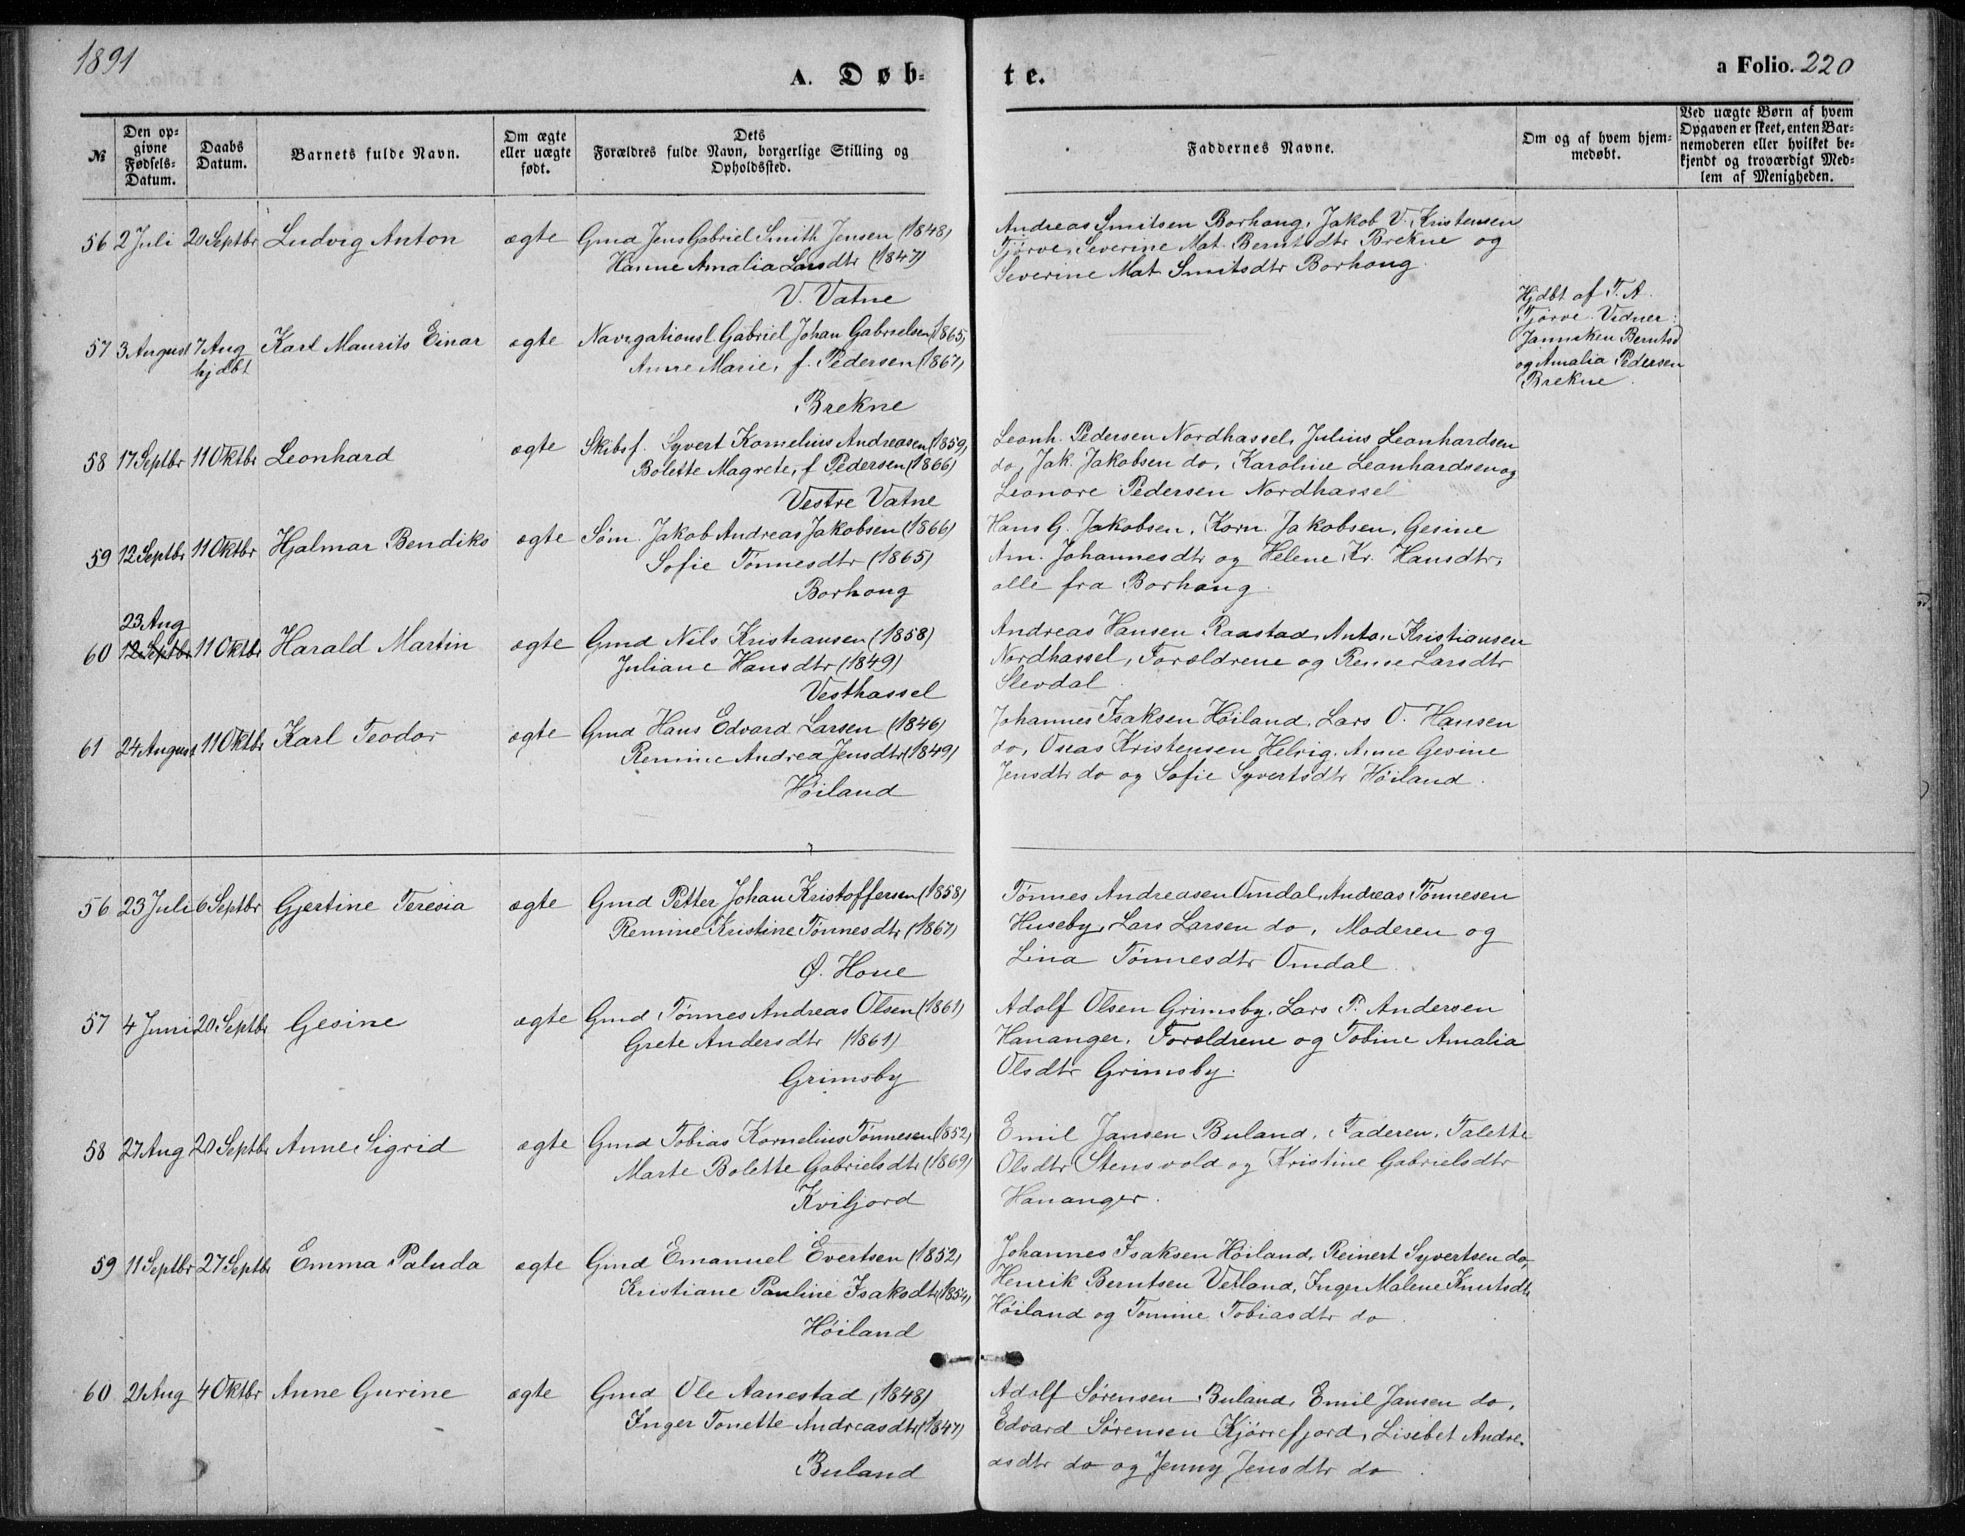 1891
A. Døb-
te.
a Folio. 220
№
Den op-
givne
Fødsels-
Datum.
Daabs
Datum.
Barnets fulde Navn.
Om ægte
eller uægte
født.
Dets
Forældres fulde Navn, borgerlige Stilling og
Opholdssted.
Faddernes Navne.
Om og af hvem hjem-
medøbt.
Ved uægte Børn af hvem
Opgaven er skeet, enten Bar-
nemoderen eller hvilket be-
kjendt og troværdigt Med-
lem af Menigheden.
56 2 Juli 20 Septbr Ludvig Anton ægte Gmd Jens Gabriel Smith Jensen (1848)
Hanne Amalia Larsdtr (1847)
V. Vatne
Andreas Smitsen Borhaug, Jakob V. Kristensen
Tjørve, Severine Mat. Berntsdtr Brekne og
Severine Mat. Smitsdtr Borhaug.
57 3 August 7 Aug Karl Maurits Einar ægte Navigationsl. Gabriel Johan Gabrielsen (1865)
hjdbt
Anne Marie, f. Pedersen (1867)
Brekne
Hjdbt af T. A.
Tjørve. Vidner:
Janniken Berntsd
og Amalia Pedersen
Brekne.
58 17 Septbr 11 Oktbr Leonhard ægte Skibsf. Syvert Kornelius Andreasen (1859)
Bolette Magrete, f. Pedersen (1866)
Vestre Vatne
Leonh. Pedersen Nordhassel, Julius Leonhardsen
do, Jak. Jakobsen do, Karoline Leonhardsen og
Leonore Pedersen Nordhassel
59 12 Septbr 11 Oktbr Hjalmar Bendiks ægte Søm. Jakob Andreas Jakobsen (1866)
Sofie Tønnesdtr (1865)
Borhoug
Hans G. Jakobsen, Korn. Jakobsen, Gesine
Am. Johannesdtr og Helene Kr. Hansdtr,
alle fra Borhaug.
23 Aug
60 12 Septbr 11 Oktbr Harald Martin ægte Gmd Nils Kristiansen (1858)
Juliane Hansdtr (1849)
Vesthassel
Andreas Hansen Raastad, Anton Kristiansen
Nordhassel, Forældrene og Rense Larsdtr
Slevdal
61 24 August 11 Oktbr Karl Teodor ægte Gmd Hans Edvard Larsen (1846)
Remine Andrea Jensdtr (1849)
Høiland
Johannes Isaksen Høiland, Lars O. Hansen
do, Oseas Kristensen Helvig, Anne Gesine
Jensdtr do og Sofie Syvertsdtr Høiland.
56 23 Juli 6 Septbr Gjertine Teresia ægte Gmd Petter Johan Kristoffersen (1858)
Remine Kristine Tønnesdtr (1867)
Ø. Houe
Tønnes Andreasen Omdal, Andreas Tønnesen
Huseby, Lars Larsen do, Moderen og
Lina Tønnesdtr Omdal.
57 4 Juni 20 Septbr Gesine ægte Gmd Tønnes Andreas Olsen (1861)
Grete Andersdtr (1861)
Grimsby
Adolf Olsen Grimsby, Lars P. Andersen
Hananger, Forældrene og Tobine Amalia
Olsdtr Grimsby.
58 27 Aug 20 Septbr Anne Sigrid ægte Gmd Tobias Kornelius Tønnesen (1852)
Marte Bolette Gabrielsdtr (1869)
Kviljord
Emil Jansen Buland, Faderen, Talette
Olsdtr Stensvold og Kristine Gabrielsdtr
Hananger.
59 11 Septbr 27 Septbr Emma Paluda ægte Gmd Emanuel Evertsen (1852)
Kristiane Pauline Isaksdtr (1854)
Høiland
Johannes Isaksen Høiland, Reinert Syvertsen do,
Henrik Berntsen Vetland, Inger Malene Knutsdtr
Høiland og Tomine Tobiasdtr do.
60 21 Aug 4 Oktbr Anne Gurine ægte Gmd Ole Aanestad (1848)
Inger Tonette Andreasdtr (1847)
Buland
Adolf Sørensen Buland, Emil Jansen do,
Edvard Sørensen Kjørrefjord, Lisebet Andre-
asdtr do og Jenny Jensdtr do.